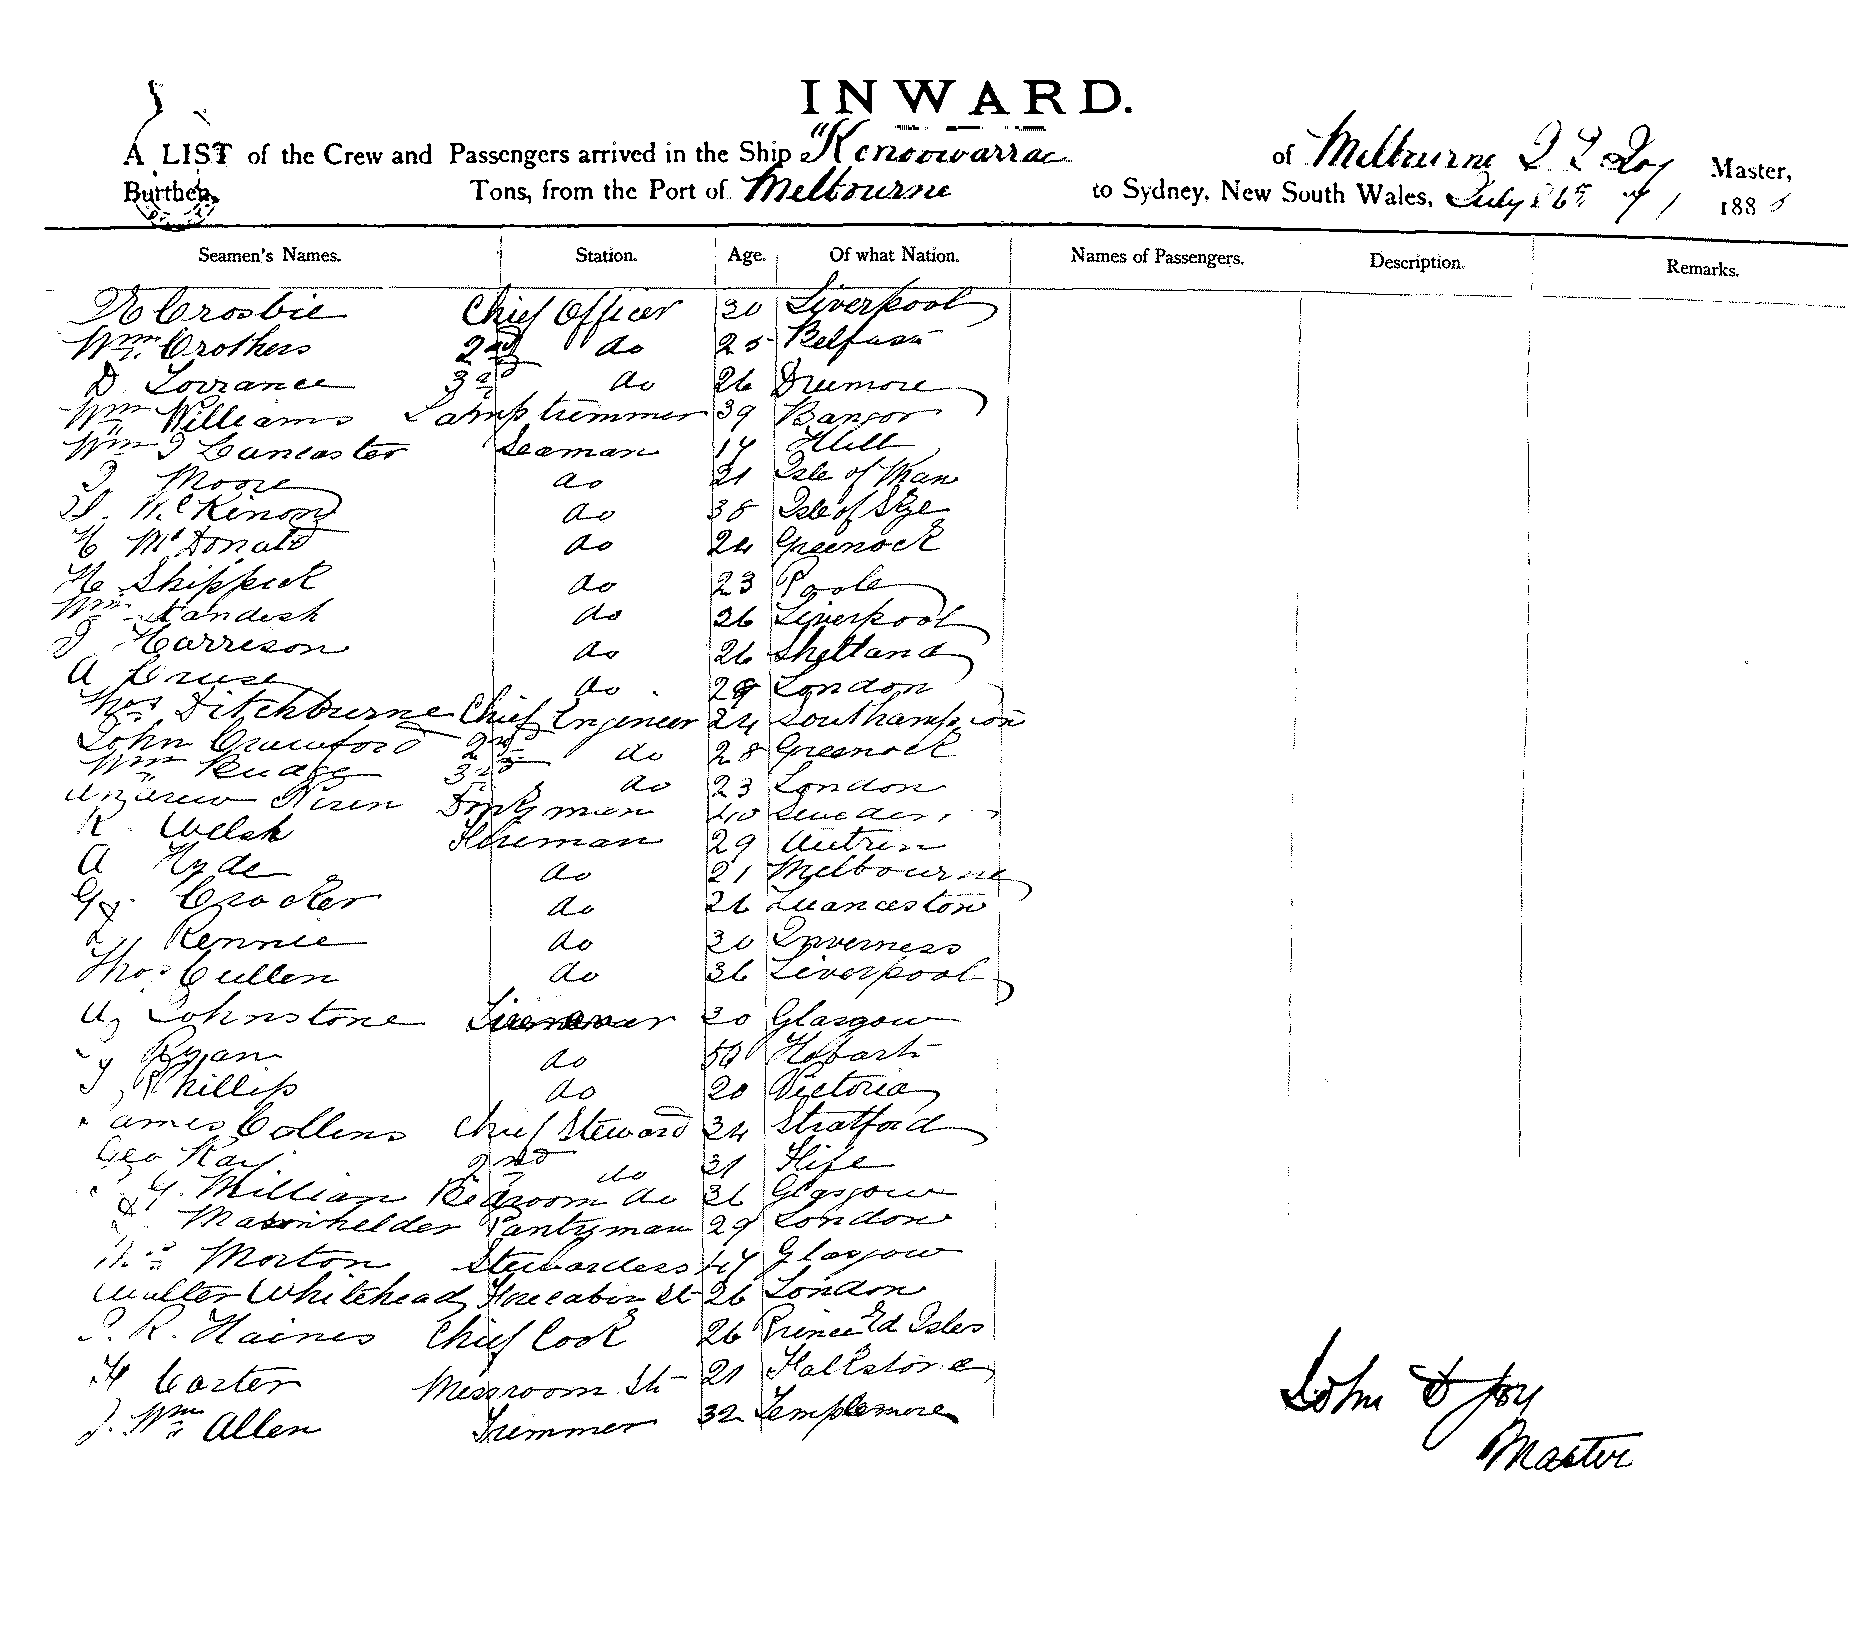 INWARD.
A LIST of the Crew and Passengers arrived in the Ship "Kenoowarra of Melbourne Master,
Burthen, Tons, from the Port of Melbourne to Sydney, New South Wales, July 26th 188
Seamen's Names. Station. Age. Of what Nation. Names of Passengers. Description. Remarks.
Crosbie Chief Officer 30 Liverpool
Wm Crothers 2nd do 25 Belfast
D. Lorrance 3rd do 26 Drumore
Wm Williams Lamptrimmer 39 Bangor
Wm J Lancaster Seaman Hull
Moore do 21 Isle of Man
McKinon do 38 Isle of Skye
McDonald do 24 Greenock
H Shippick do 23 Poole
Wm Standish do 26 Liverpool
J Harrison do 26 Shetland
A Cruse do London
Thos Ditchburne Chief Engineer 24 Southampton
John Crawford 2nd do 28 Greenock
Wm Rudge 3rd do 23 London
Andrew Donkyman 40 Sweden
R. Welsh Fireman 29 Antrim
A Hyde do 21 Melbourne
Crocker do 26 Luanceston
Rennie do 30 Inverness
Thos Cullen do 36 Liverpool
A Johnstone 30 Glasgow
Ryan do Hobart
J Phillips do 20 Victoria
James Collins Chief Steward 34 Stratford
Geo Kay 2nd do 31 Fife
Millian Bedroom do 36 Glasgow
Pantryman 29 London
Mrs Morton Stewardess 47 Glasgow
Walter Whitehead Forecabin St 26 London
R. Haines Chief Cook 26 Prince Ed Isles
H Carter Messroom St 21 Folkstone
J. Wm Allen Trimmer 32 Templemore
John Joy
Master